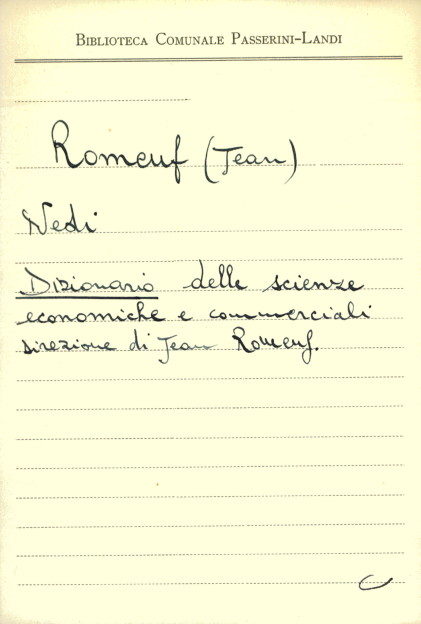 BIBLIOTECA COMUNALE PASSERINI-LANDI
Romeuf (Jean)
Vedi
Dizionario delle scienze
economiche e commerciali
direzione di Jean Romeuf.